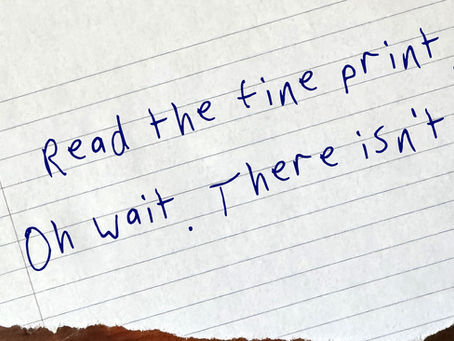 Read the fine print.
Oh wait. There isn't